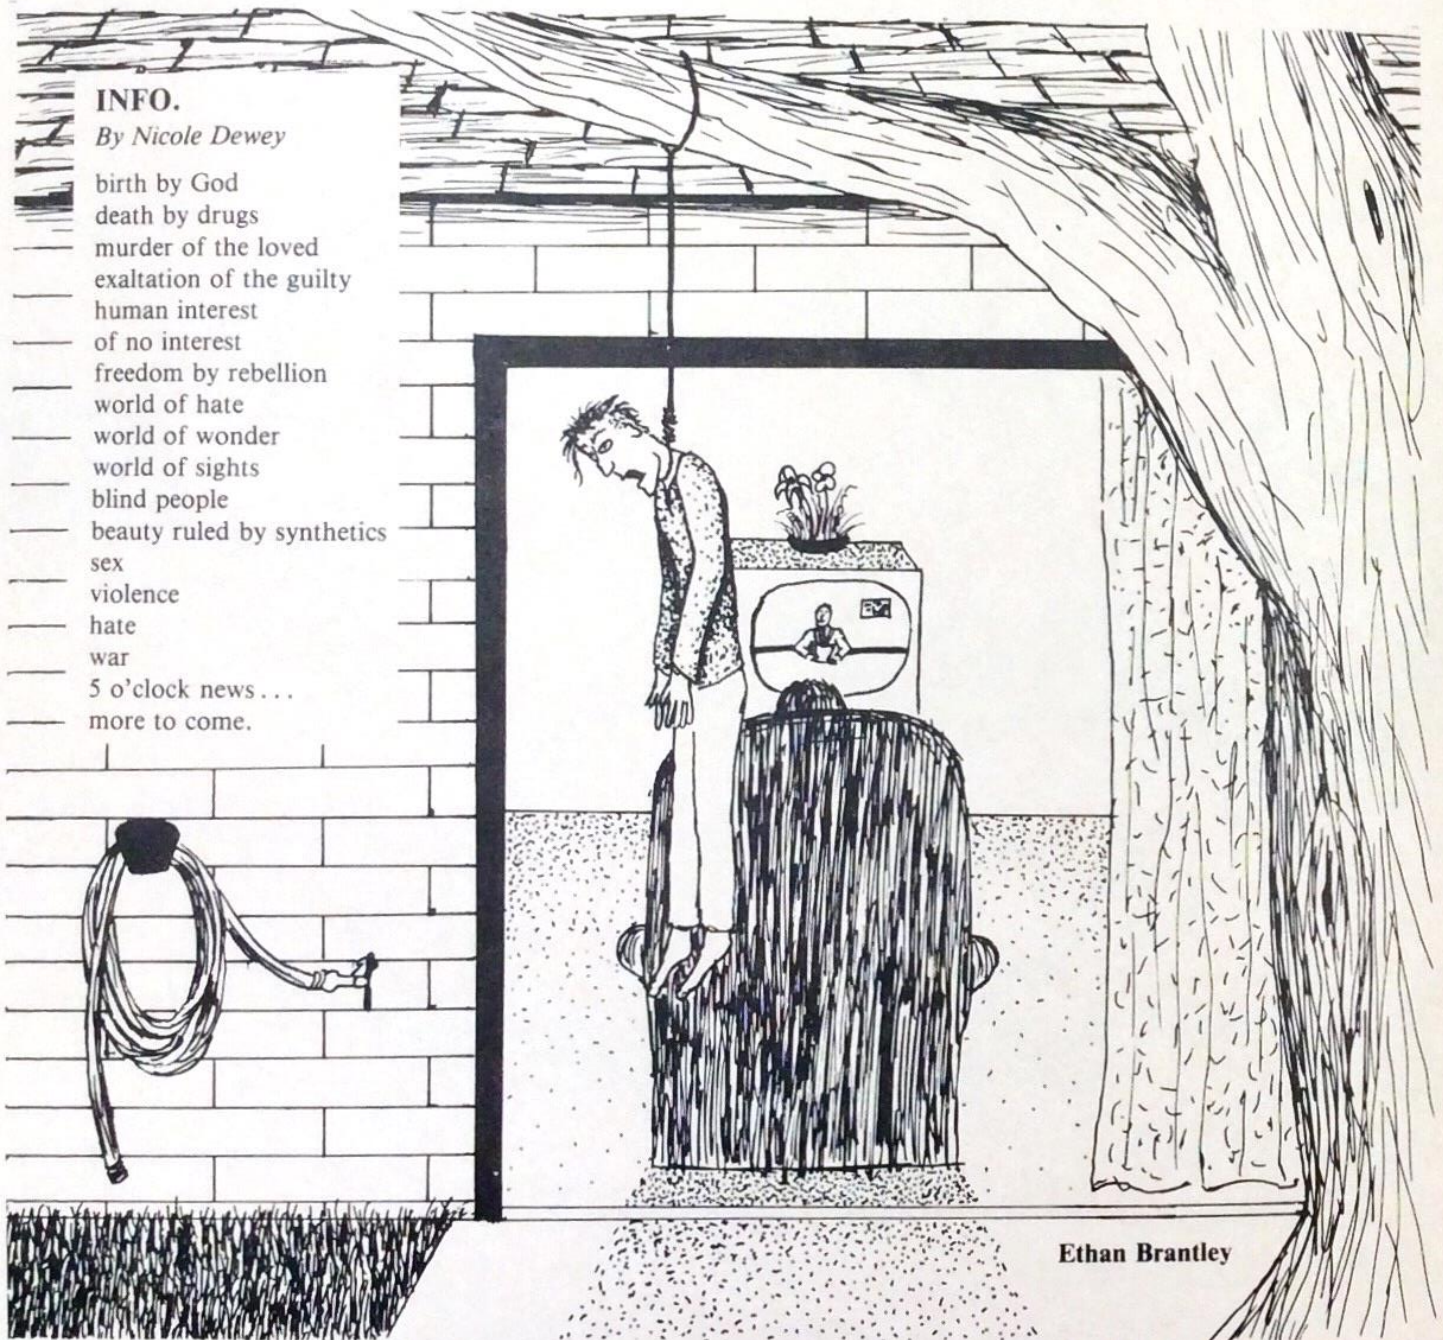 INFO.
By Nicole Dewey
birth by God
death by drugs
murder of the loved
exaltation of the guilty
human interest
of no interest
freedom by rebellion
world of hate
world of wonder
world of sights
blind people
beauty ruled by synthetics
sex
violence
hate
war
5 o'clock news...
more to come.
Ethan Brantley